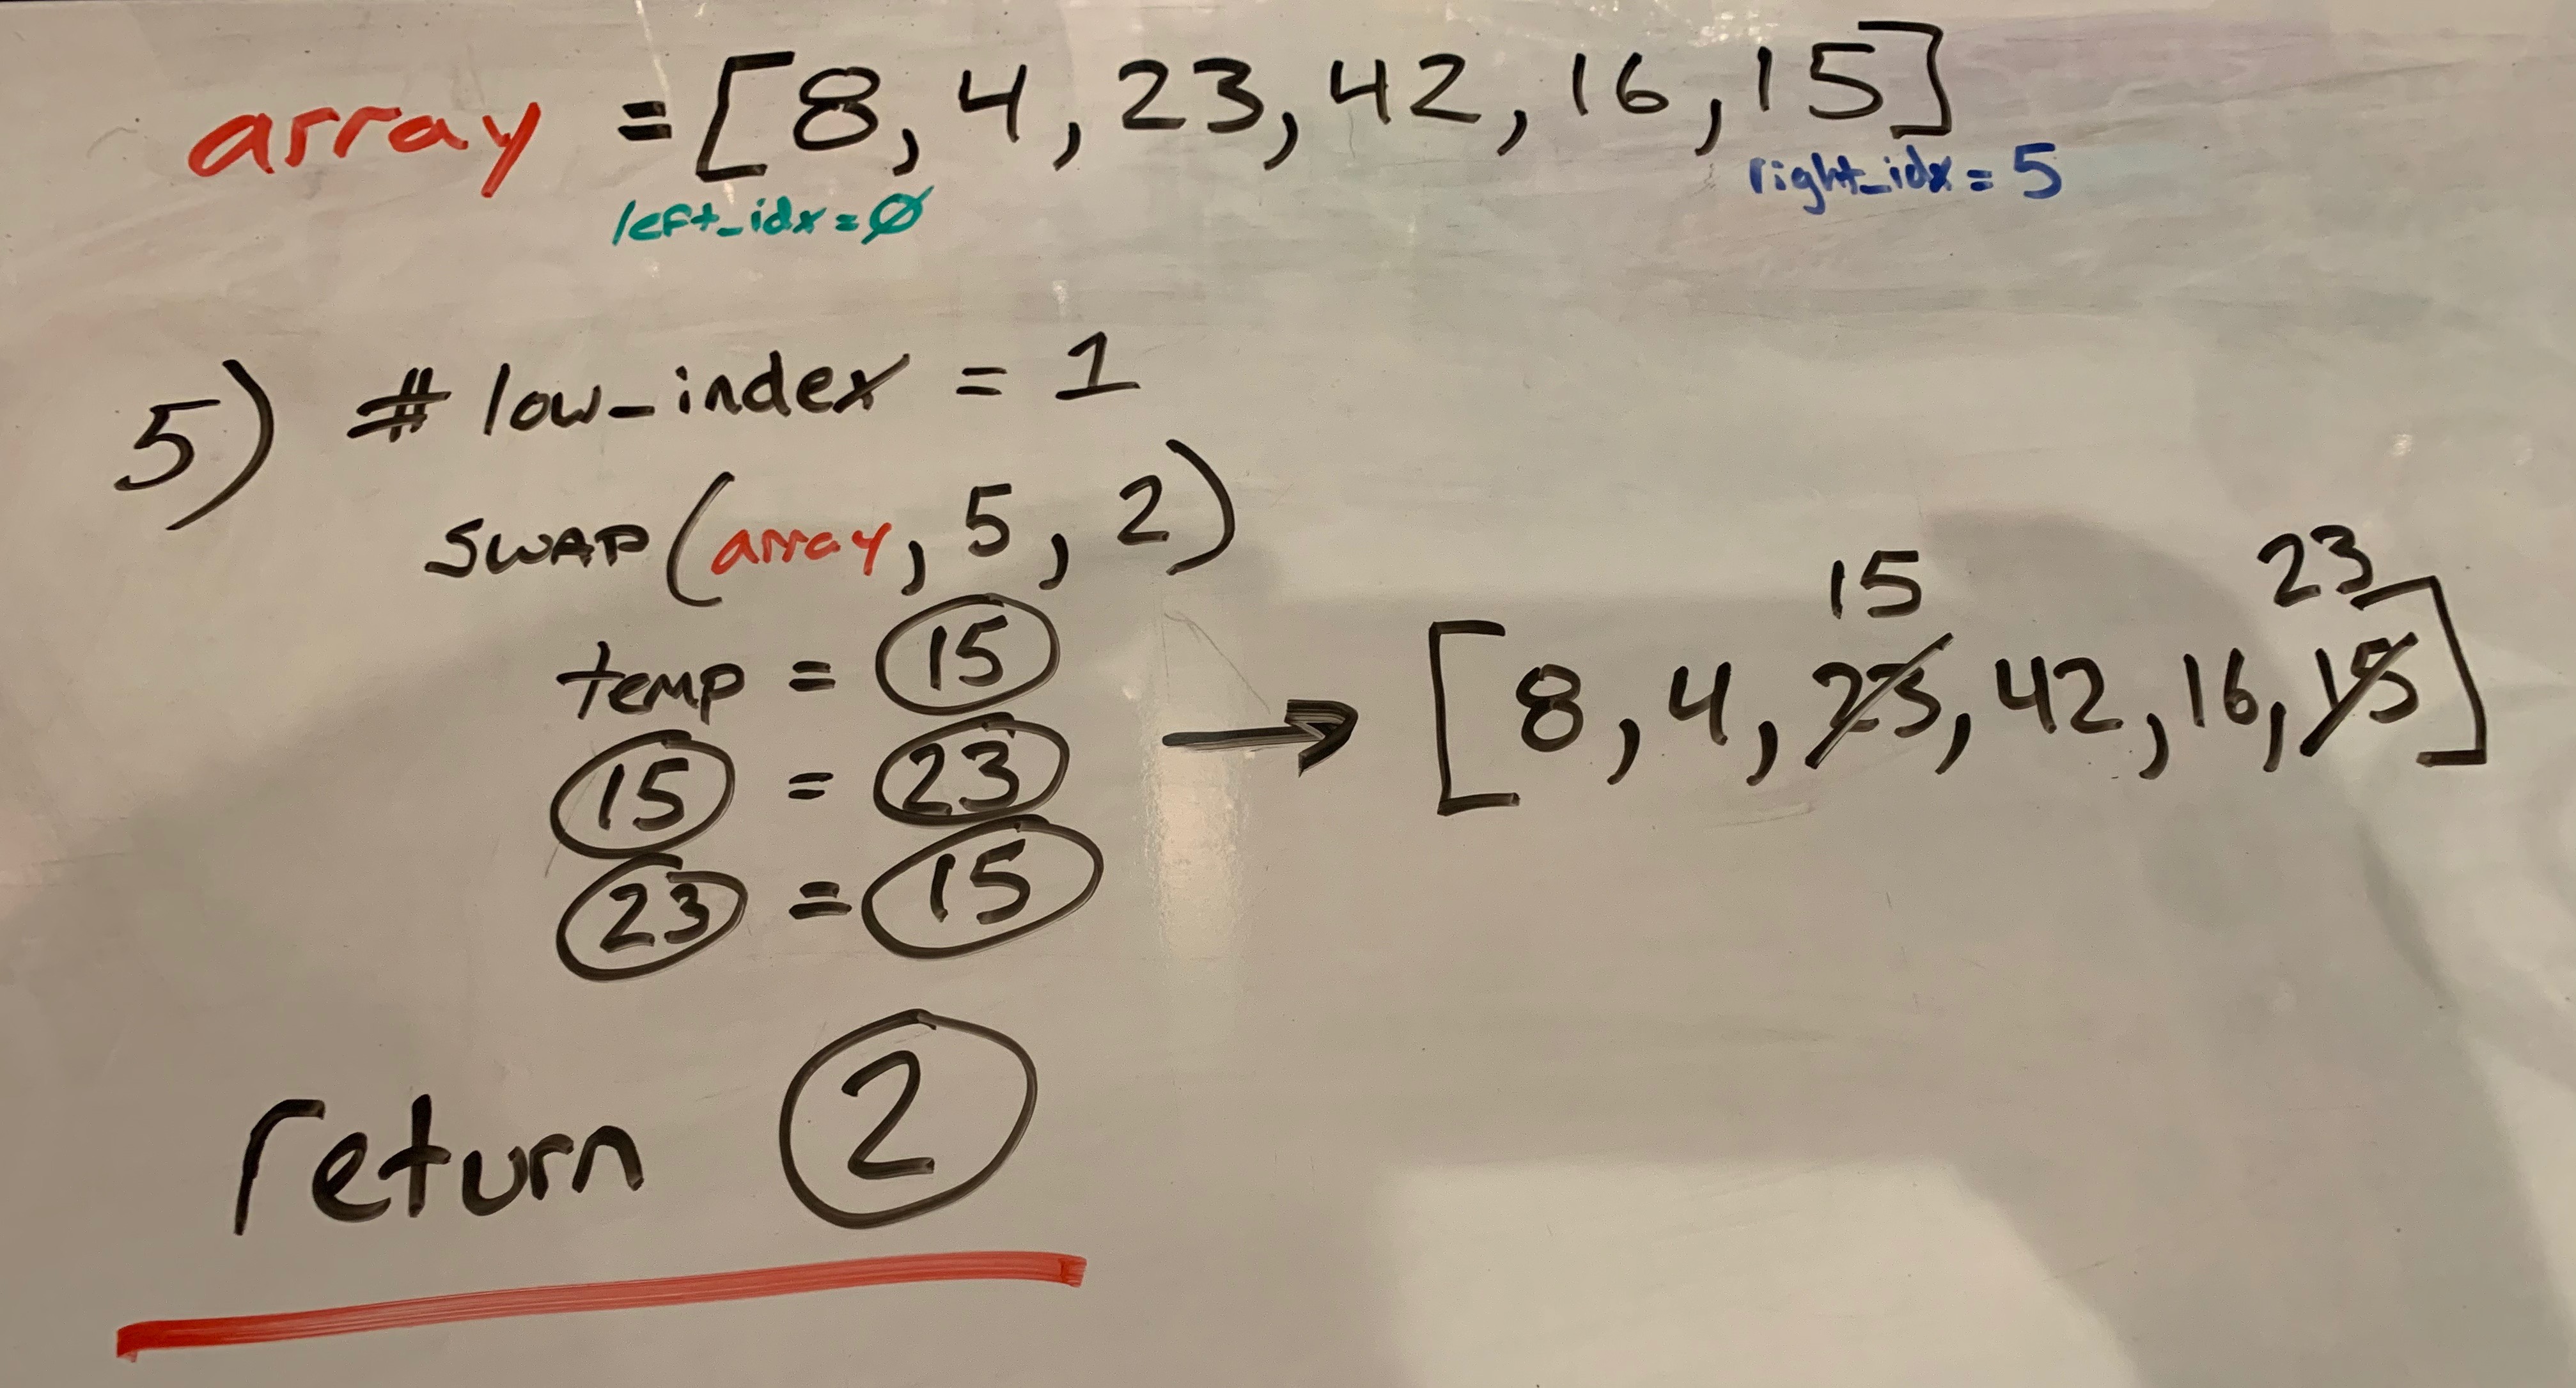 array = [8, 4, 23, 42, 16, 15]
left_idx = Ø
right_idx = 5
5) # low_index = 1
SWAP(array, 5, 2)
temp = 15
15 = 23
23 = 15
15 23
→ [8, 4, 23, 42, 16, 15]
return 2